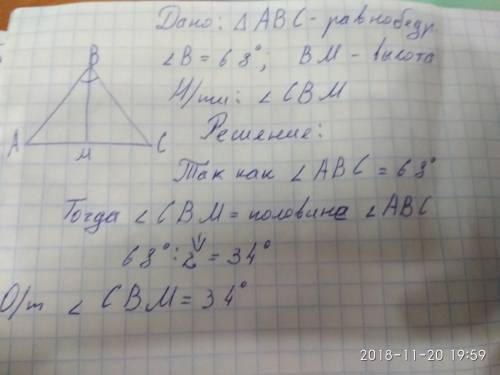 Дано: △ABC - равнобедр.
∠B = 68°; BM - высота
Н/ти: ∠CBM
B
Решение:
A
M
C
Так как ∠ABC = 68°
Тогда ∠CBM = половине ∠ABC
68° : 2 = 34°
О/т ∠CBM = 34°
2018-11-20 19:59